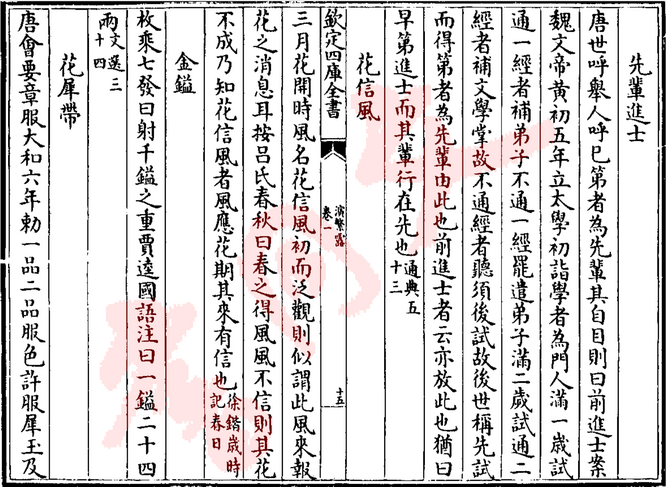 先輩進士
唐世呼舉人呼已第者為先輩其自目則曰前進士案
魏文帝黃初五年立太學初詣學者為門人滿一歲試
通一經者補弟子不通一經罷遣弟子滿二歲試通二
經者補文學掌故不通經者聽須後試故後世稱先試
而得第者為先輩由此也前進士者云亦放此也猶曰
早第進士而其輩行在先也通典五十三
花信風
欽定四庫全書
演繁露
卷一
十五
三月花開時風名花信風初而泛觀則似謂此風來報
花之消息耳按呂氏春秋曰春之得風風不信則其花
不成乃知花信風者風應花期其來有信也徐鍇歲時記春日
金鎰
枚乘七發曰射千鎰之重賈逵國語注曰一鎰二十四
兩文選三十四
花犀帶
唐會要章服大和六年勅一品二品服色許服犀玉及